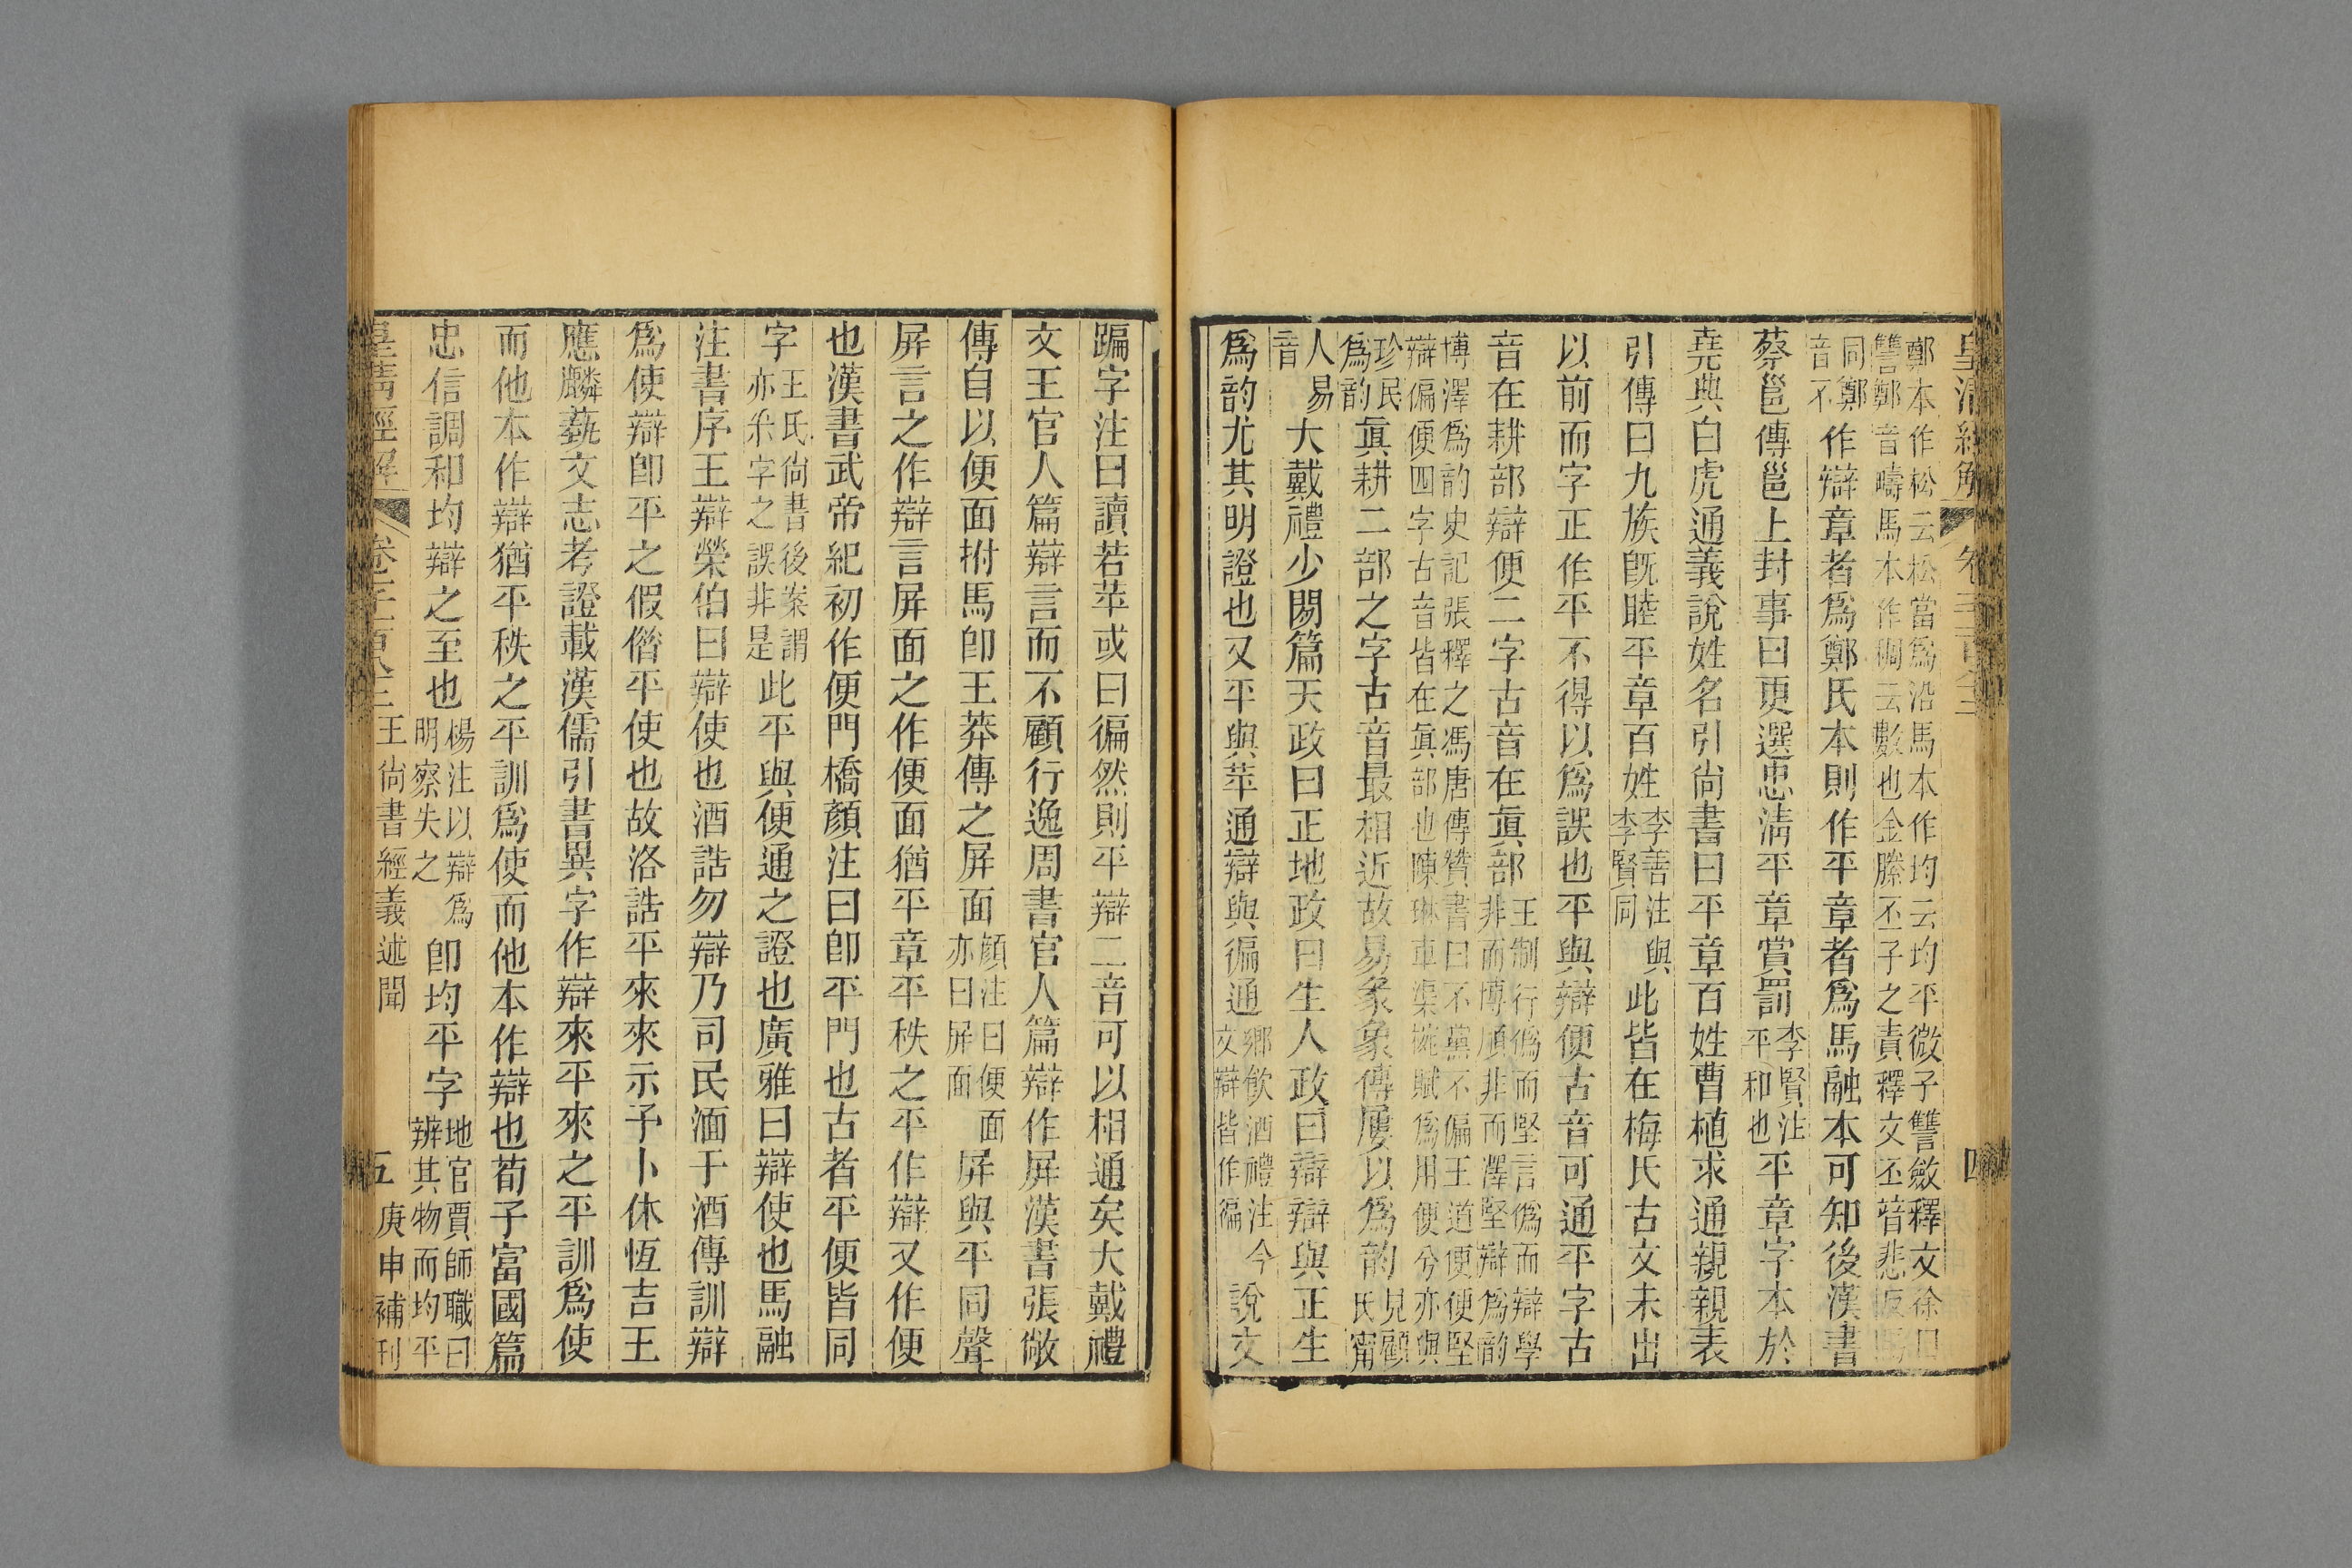 皇清經解 卷千百八十三 四
鄭本作松云松當爲沿馬本作均云均平微子讐斂釋文徐曰
讐鄭音疇馬本作稠云數也金縢丕子之責釋文丕音悲馬
同鄭
音不 作辯章者爲鄭氏本則作平章者爲馬融本可知後漢書
蔡邕傳邕上封事曰更選忠淸平章賞罰 李賢注
平和也 平章字本於
堯典白虎通義說姓名引尙書曰平章百姓曹植求通親親表
引傳曰九族旣睦平章百姓 李善注與
李賢同 此皆在梅氏古文未出
以前而字正作平不得以爲誤也平與辯便古音可通平字古
音在耕部辯便二字古音在眞部 王制行僞而堅言僞而辯學
非而博順非而澤堅辯爲韵
博澤爲韵史記張釋之馮唐傳贊書曰不黨不偏王道便便堅
辯偏便四字古音皆在眞部也陳琳車渠椀賦爲用便兮亦與
珍民
爲韵 眞耕二部之字古音最相近故易彖象傳屢以爲韵 見顧
氏甯
人易
音 大戴禮少閒篇天政曰正地政曰生人政曰辯辯與正生
爲韵尤其明證也又平與苹通辯與徧通 鄉飮酒禮注今
文辯皆作徧 說文
蹁字注曰讀若苹或曰徧然則平辯二音可以相通矣大戴禮
文王官人篇辯言而不顧行逸周書官人篇辯作屛漢書張敞
傳自以便面拊馬卽王莽傳之屛面 顏注曰便面
亦曰屛面 屛與平同聲
屛言之作辯言屛面之作便面猶平章平秩之平作辯又作便
也漢書武帝紀初作便門橋顏注曰卽平門也古者平便皆同
字 王氏尙書後案謂
亦釆字之誤非是 此平與便通之證也廣雅曰辯使也馬融
注書序王辯榮伯曰辯使也酒誥勿辯乃司民湎于酒傳訓辯
爲使辯卽平之假僭平使也故洛誥平來來示予卜休恆吉王
應麟藝文志考證載漢儒引書異字作辯來平來之平訓爲使
而他本作辯猶平秩之平訓爲使而他本作辯也荀子富國篇
忠信調和均辯之至也 楊注以辯爲
明察失之 卽均平字 地官賈師職曰
辨其物而均平
皇清經解 卷千百八十三 王尙書經義述聞 五 庚申補刊